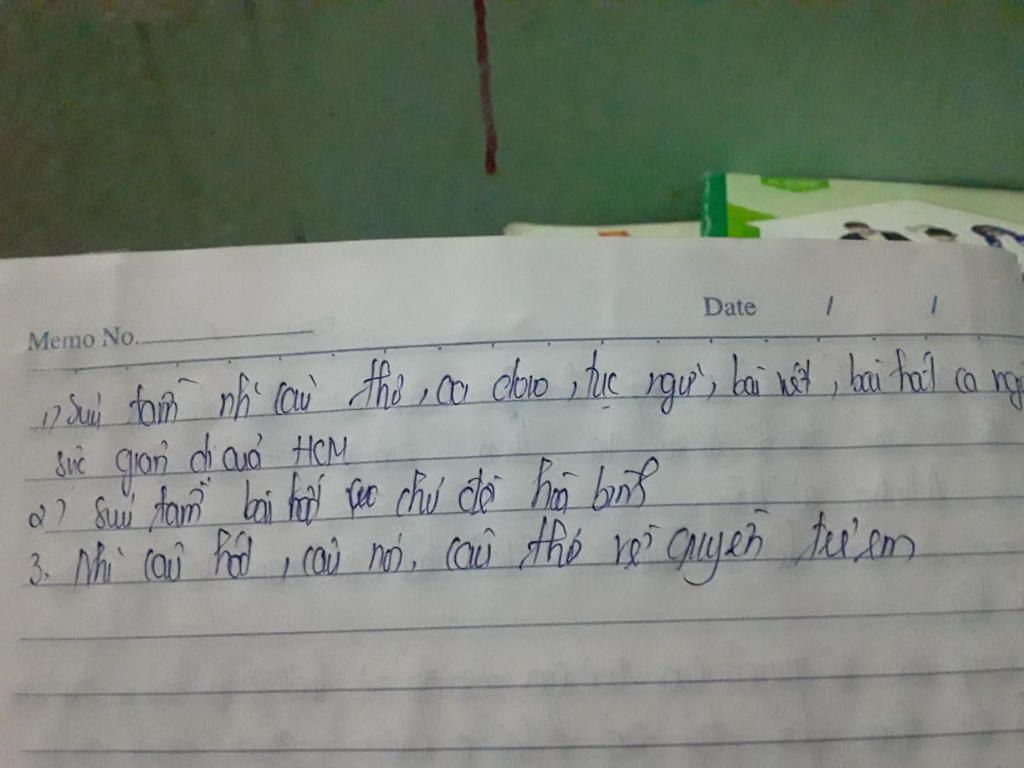 Memo No.
Date / /
1) Sưu tầm nh~ câu thơ, ca dao, tục ngữ, bài viết, bài hát ca ngợi
sức giản dị của HCM
2) Sưu tầm bài hát chủ đề hoà bình
3. Nh~ câu hát, câu nói, câu thơ về quyền trẻ em